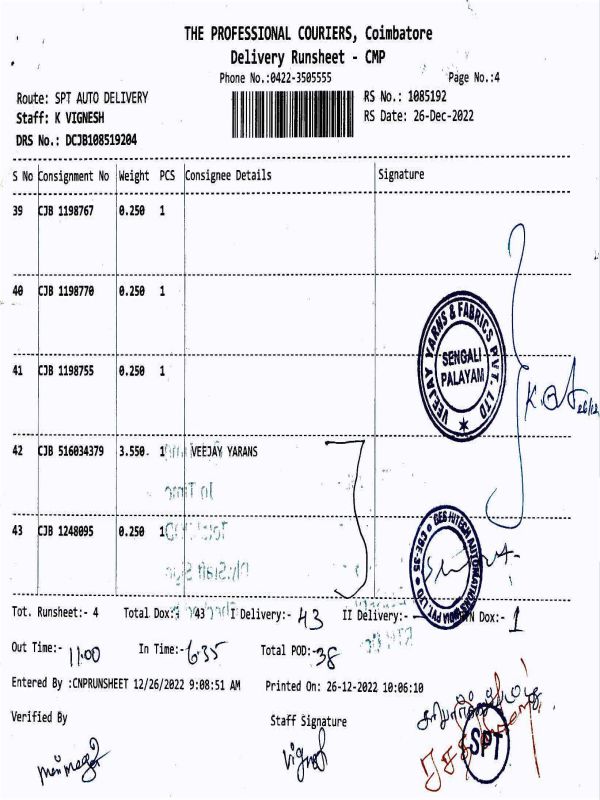 THE PROFESSIONAL COURIERS, Coimbatore
Delivery Runsheet - CMP
Phone No.:0422-3505555
Page No.:4
Route: SPT AUTO DELIVERY
RS No.: 1085192
Staff: K VIGNESH
RS Date: 26-Dec-2022
DRS No.: DCJB108519204
S No Consignment No Weight PCS Consignee Details Signature
39 CJB 1198767 0.250 1
40 CJB 1198770 0.250 1
41 CJB 1198755 0.250 1
VEEJAY YARNS & FABRICS PVT. LTD
SENGALI
PALAYAM
42 CJB 516034379 3.550 1 VEEJAY YARANS
43 CJB 1248095 0.250 1
Tot. Runsheet:- 4 Total Dox:- 43 I Delivery:- 43 II Delivery:- Dox:- 1
Out Time:- 11.00 In Time:- 6.35 Total POD:- 38
Entered By :CNPRUNSHEET 12/26/2022 9:08:51 AM Printed On: 26-12-2022 10:06:10
Verified By Staff Signature
SPT